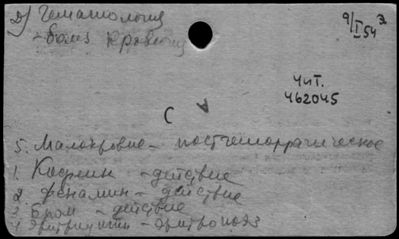 2) Гематология
9/I 54 3
- болз кроветв
Чит.
462045
С А
5. Малокровие - постгеморрагическое
1. Кофеин - действие
2. Фенамин - действие
3. Бром - действие
4. - эритропоэз